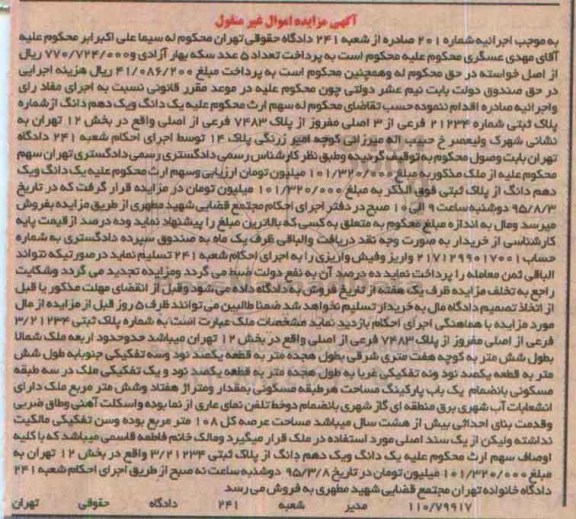 آگهی مزایده اموال غیر منقول
به موجب اجرائیه شماره ۲۰۱ صادره از شعبه ۲۴۱ دادگاه حقوقی تهران محکوم له سیما علی اکبر ابر محکوم علیه
آقای مهدی عسگری محکوم علیه محکوم است به پرداخت تعداد ۵ عدد سکه بهار آزادی و ۷۷۰/۷۲۴/۰۰۰ ریال
از اصل خواسته در حق محکوم له وهمچنین محکوم است به پرداخت مبلغ ۴۱/۰۸۶/۲۰۰ ریال هزینه اجرایی
در حق صندوق دولت بابت نیم عشر دولتی چون محکوم علیه در موعد مقرر قانونی نسبت به اجرای مفاد رای
واجرائیه صادره اقدام ننموده حسب تقاضای محکوم له سهم ارث محکوم علیه یک دانگ ویک دهم دانگ از شماره
پلاک ثبتی شماره ۲۱۲۳۴ فرعی از ۳ اصلی مفروز از پلاک ۷۴۸۳ فرعی از اصلی واقع در بخش ۱۲ تهران به
نشانی شهرک ولیعصر خ حبیب اله میرزائی کوچه امیر زرنگی پلاک ۱۴ توسط اجرای احکام شعبه ۲۴۱ دادگاه
تهران بابت وصول محکوم به توقیف گردیده وطبق نظر کارشناس رسمی دادگستری رسمی دادگستری تهران سهم
محکوم علیه از ملک مذکور به مبلغ ۱۰۱/۳۲۰/۰۰۰ میلیون تومان ارزیابی وسهم ارث محکوم علیه یک دانگ ویک
دهم دانگ از پلاک ثبتی فوق الذکر به مبلغ ۱۰۱/۳۲۰/۰۰۰ میلیون تومان در مزایده قرار گرفت که در تاریخ
۹۵/۸/۳ دوشنبه ساعت ۹ الی ۱۰ صبح در دفتر اجرای احکام مجتمع قضایی شهید مطهری از طریق مزایده بفروش
میرسد ومال به اندازه مبلغ محکوم به متعلق به کسی که بالاترین مبلغ را پیشنهاد نماید وده درصد از قیمت پایه
کارشناسی از خریدار به صورت وجه نقد دریافت والباقی ظرف یک ماه به صندوق سپرده دادگستری به شماره
حساب ۲۱۷۱۲۹۹۰۱۷۰۰۱ واریز وفیش واریزی را به اجرای احکام شعبه ۲۴۱ تسلیم نماید در صورتیکه نتواند
الباقی ثمن معامله را پرداخت نماید ده درصد آن به نفع دولت ضبط می گردد ومزایده تجدید می گردد وشکایت
راجع به تخلف مزایده ظرف یک هفته از تاریخ فروش به دادگاه داده می شود وقبل از انقضای مهلت مذکور یا قبل
از اتخاذ تصمیم دادگاه مال به خریدار تسلیم نخواهد شد ضمنا طالبین می توانند ظرف ۵ روز قبل از مزایده از مال
مورد مزایده با هماهنگی اجرای احکام بازدید نماید مشخصات ملک عبارت است به شماره پلاک ثبتی ۳/۲۱۲۳۴
فرعی از اصلی مفروز از پلاک ۷۴۸۳ فرعی از اصلی واقع در بخش ۱۲ تهران میباشد حدود اربعه ملک شمالا
بطول شش متر به کوچه هفت متری شرقی بطول هجده متر به قطعه یکصد نود وسه تفکیکی جنوبا به طول شش
متر به قطعه یکصد نود ونه تفکیکی غربا به طول هجده متر به قطعه یکصد نود و یک تفکیکی ملک در سه طبقه
مسکونی بانضمام یک باب پارکینگ مساحت هر طبقه مسکونی بمقدار ومتراژ هفتاد وشش متر مربع ملک دارای
انشعابات آب شهری برق منطقه ای گاز شهری بانضمام دو خط تلفن نمای عاری از نما بوده واسکلت آهنی وطاق ضربی
وقدمت بنای احداثی بیش از هشت سال میباشد مساحت عرصه کل ۱۰۸ متر مربع بوده وسن تفکیکی مالکیت
نداشته ولیکن از یک سند اصلی مورد استفاده در ملک قرار میگیرد ومالک خانم فاطمه قاسمی میباشد که با کلیه
اوصاف سهم ارث محکوم علیه یک دانگ ویک دهم دانگ از پلاک ثبتی ۳/۲۱۲۳۴ واقع در بخش ۱۲ تهران به
مبلغ ۱۰۱/۳۲۰/۰۰۰ میلیون تومان در تاریخ ۹۵/۳/۸ دوشنبه ساعت نه صبح از طریق اجرای احکام شعبه ۲۴۱
دادگاه خانواده تهران مجتمع قضایی شهید مطهری به فروش می رسد
۱۱۰/۷۹۹۱۷ مدیر شعبه ۲۴۱ دادگاه حقوقی تهران